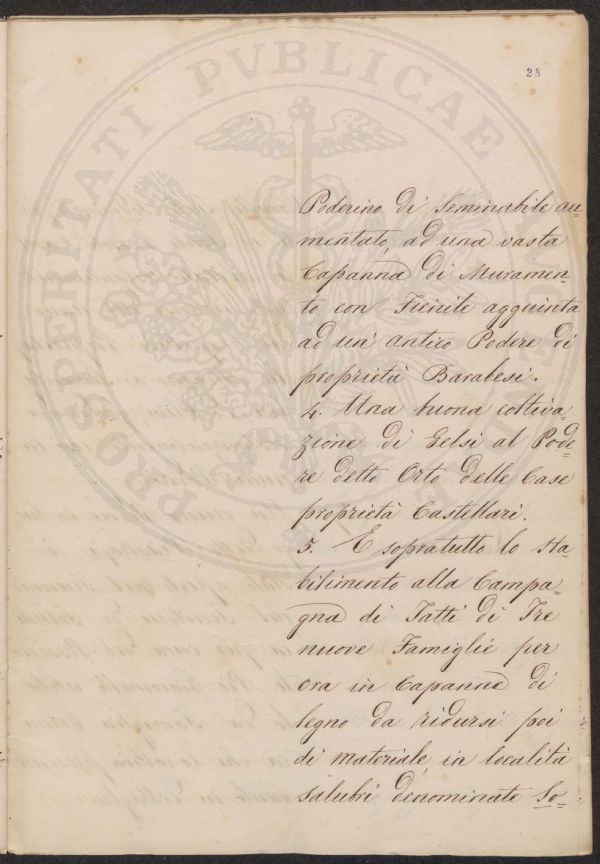 28
PROSPERITATI PVBLICAE
Poderino di Seminabile au=
mentato, ad una vasta
Capanna di Muramen=
to con Fienile aggiunta
ad un' antico Podere di
proprietà Barabesi.
4. Una buona coltiva=
zione di Gelsi al Pode=
re detto Orto delle Case
proprietà Castellari.
5. E sopratutto lo sta=
bilimento alla Campa=
gna di Tatti di Tre
nuove Famiglie per
ora in Capanne di
legno da ridursi poi
di materiale, in località
salubri denominate So=